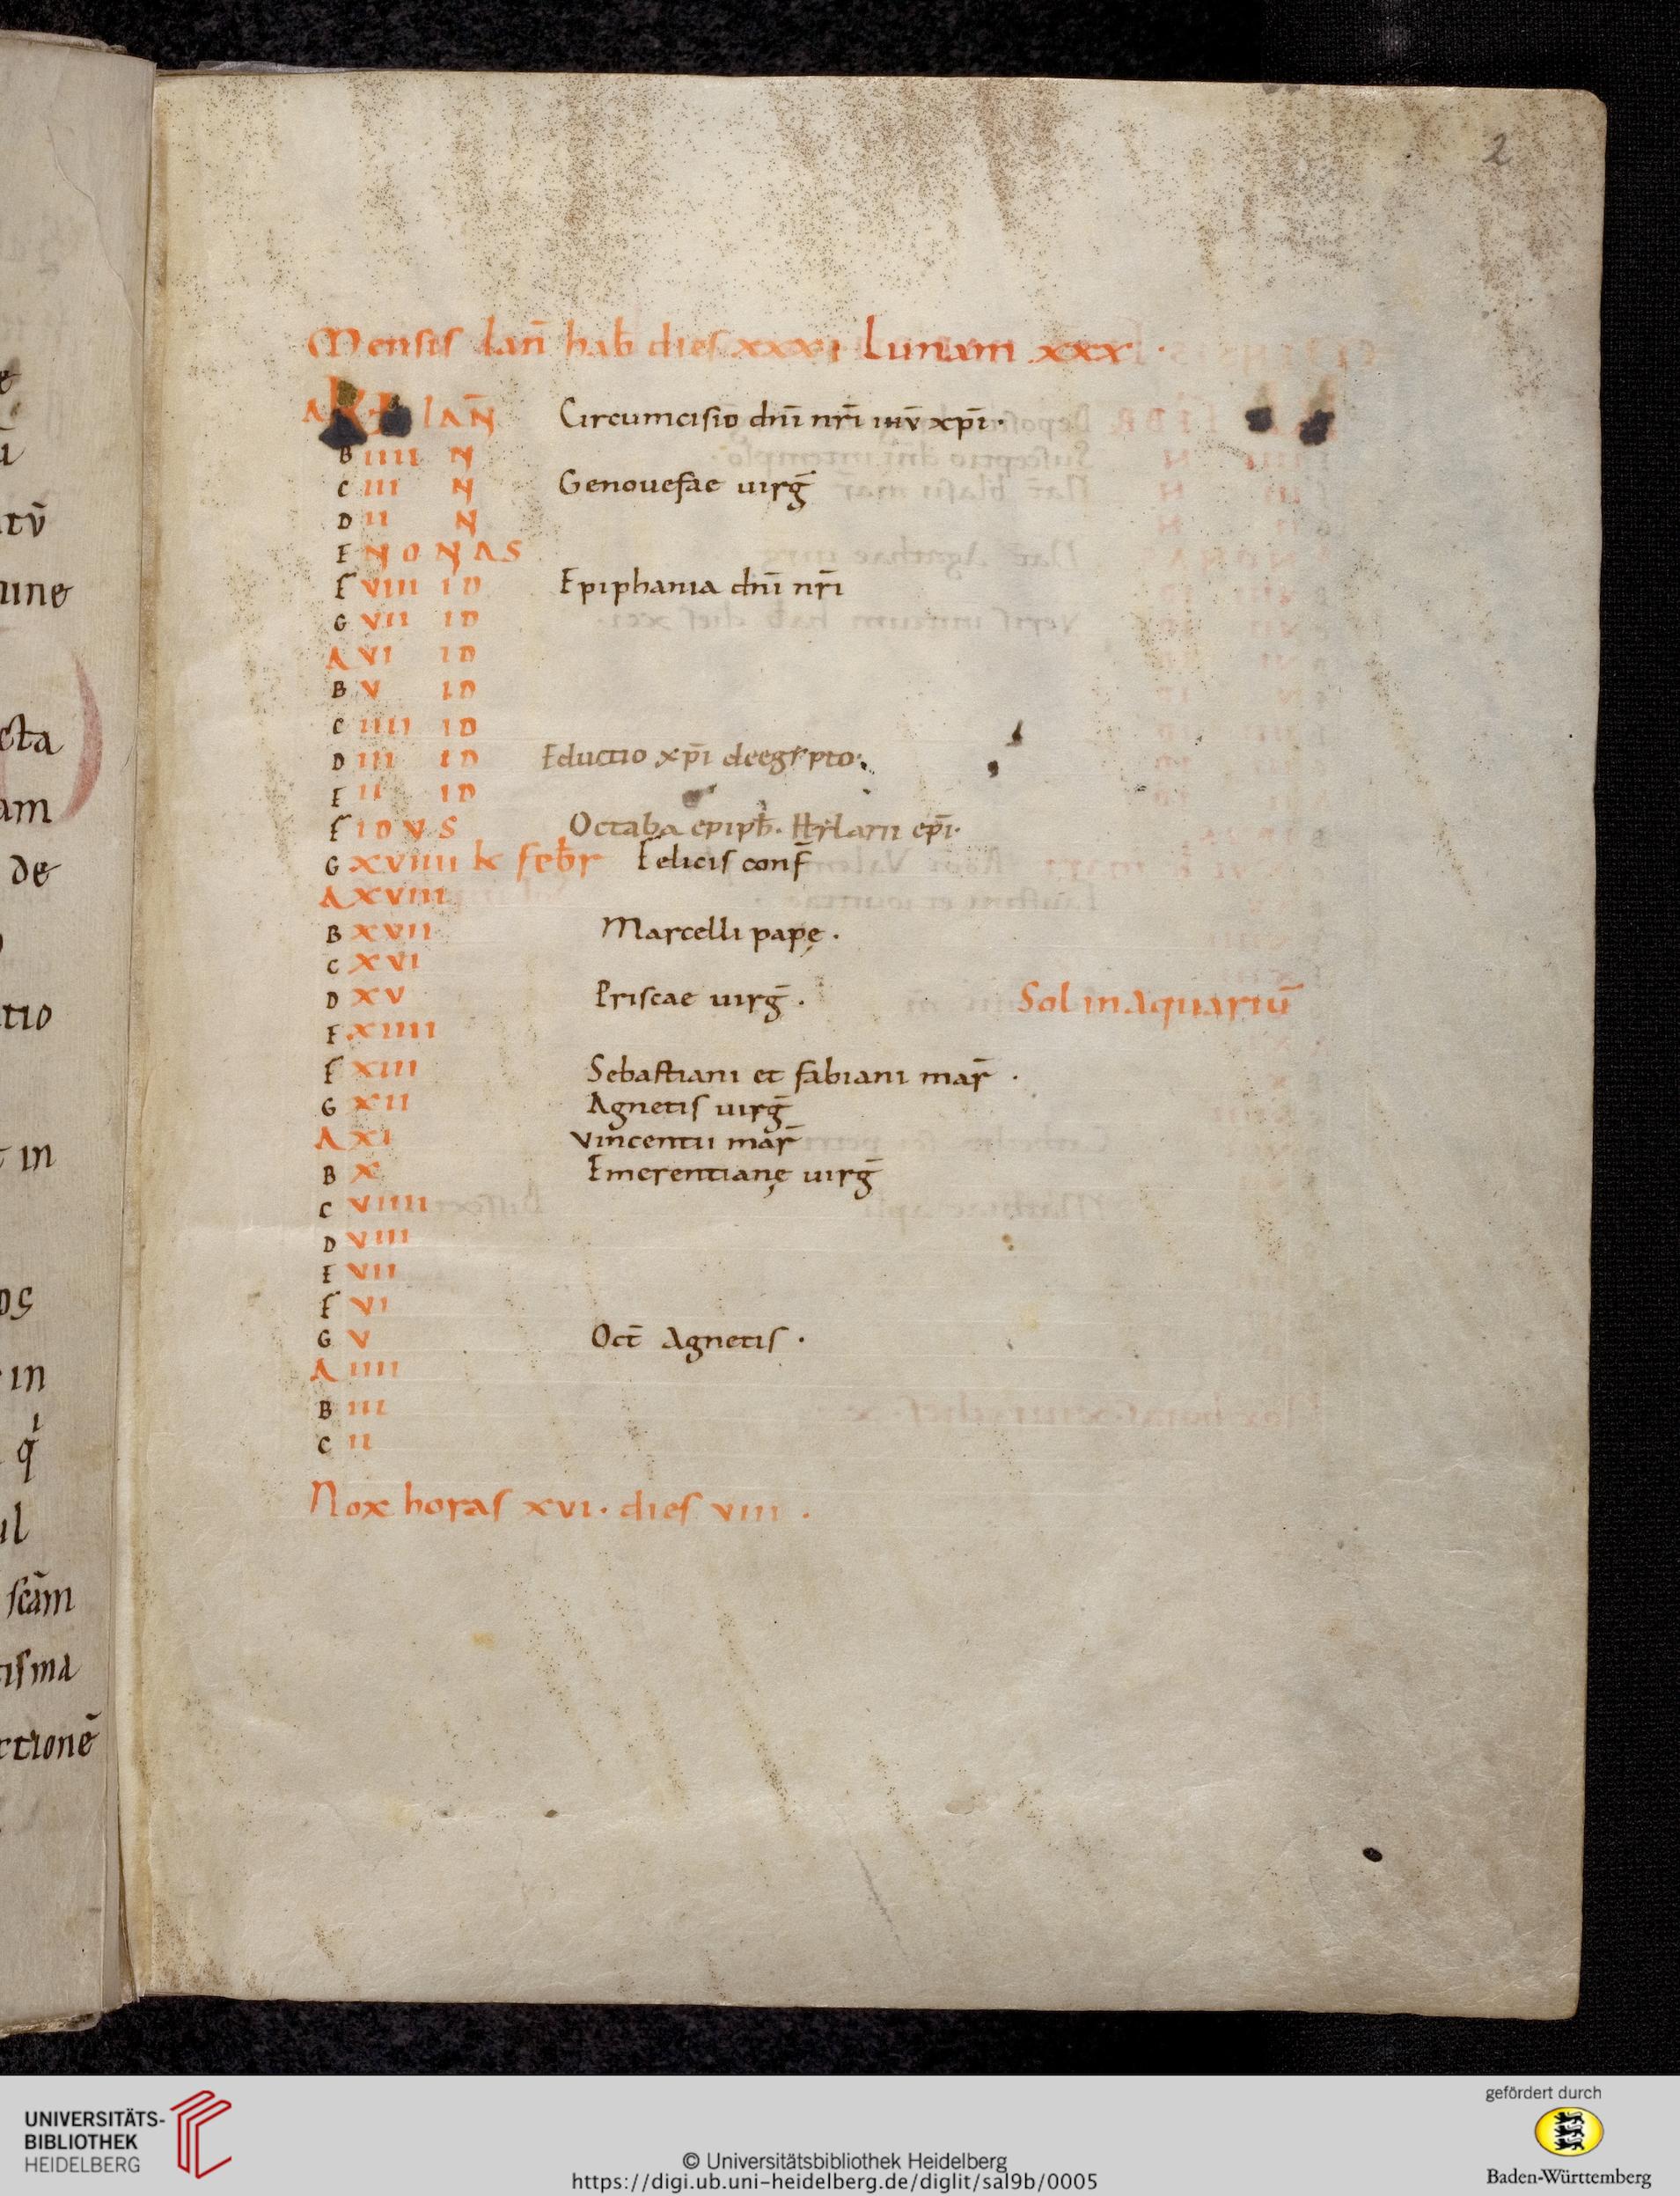 2
Mensis Ian̄ hab̄ dies xxxi Lunam xxx ·
A KL IAN̄ Circumcisio dn̄i nr̄i iħv xp̄i ·
B IIII N
C III N Genouefae uirḡ
D II N
E NONAS
F VIII ID Epiphania dn̄i nr̄i
G VII ID
A VI ID
B V ID
C IIII ID
D III ID Eductio xp̄i deegypto ·
E II ID
F IDVS Octaba epiph̄ · Hylarii ep̄i ·
G XVIIII k febr̄ Felicis conf̄
A XVIII
B XVII Marcelli papę ·
C XVI
D XV Priscae uirḡ · Sol in aquariū
E XIIII
F XIII Sebastiani et fabiani mar̄ ·
G XII Agnetis uirḡ
A XI Vincentii mar̄
B X Emerentianę uirḡ
C VIIII
D VIII
E VII
F VI
G V Oct̄ Agnetis ·
A IIII
B III
C II
Nox horas xvi · dies viii ·
tū
uine
cta
am
de
tio
in
os
in
ul
scām
tisma
ctionē
UNIVERSITÄTS-
BIBLIOTHEK
HEIDELBERG
© Universitätsbibliothek Heidelberg
https://digi.ub.uni-heidelberg.de/diglit/sal9b/0005
gefördert durch
Baden-Württemberg